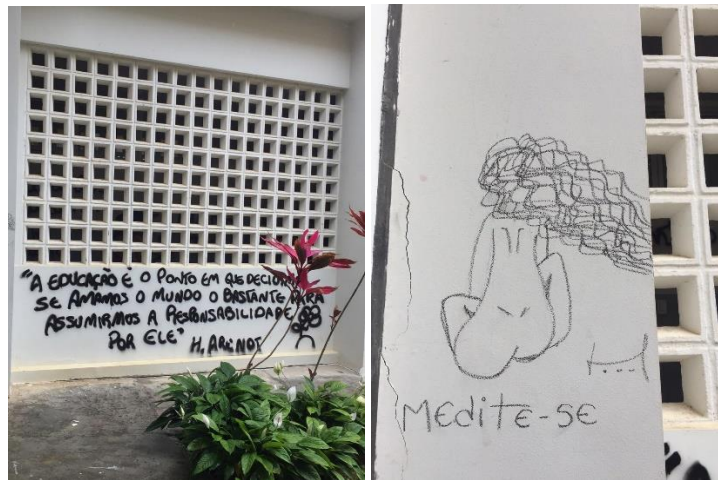 "A EDUCAÇÃO É O PONTO EM QUE DECIDIMOS
SE AMAMOS O MUNDO O BASTANTE PARA
ASSUMIRMOS A RESPONSABILIDADE
POR ELE"
H. ARENDT
MEDITE-SE